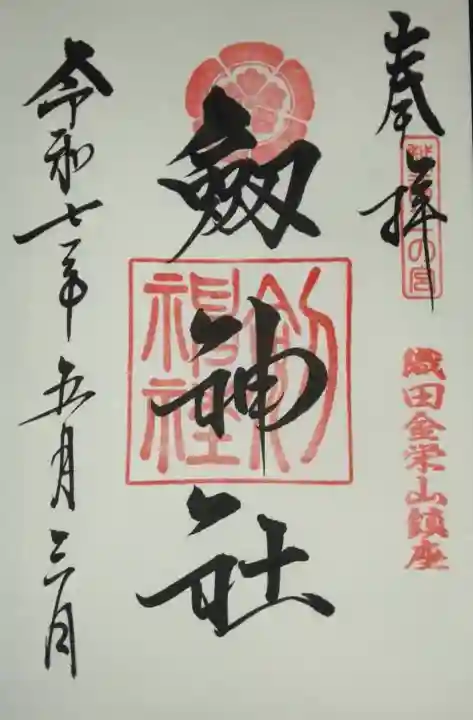 奉拝
織田金栄山鎮座
劔神社
剣神社
令和七年五月三日